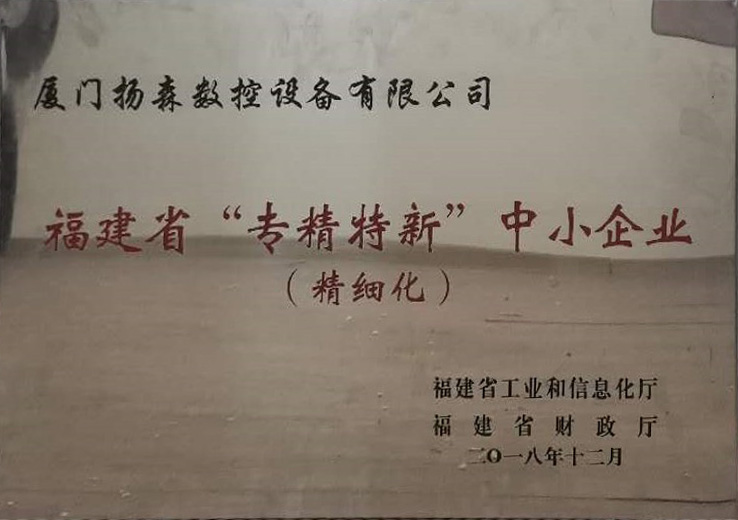 厦门扬森数控设备有限公司
福建省“专精特新”中小企业
（精细化）
福建省工业和信息化厅
福建省财政厅
二〇一八年十二月